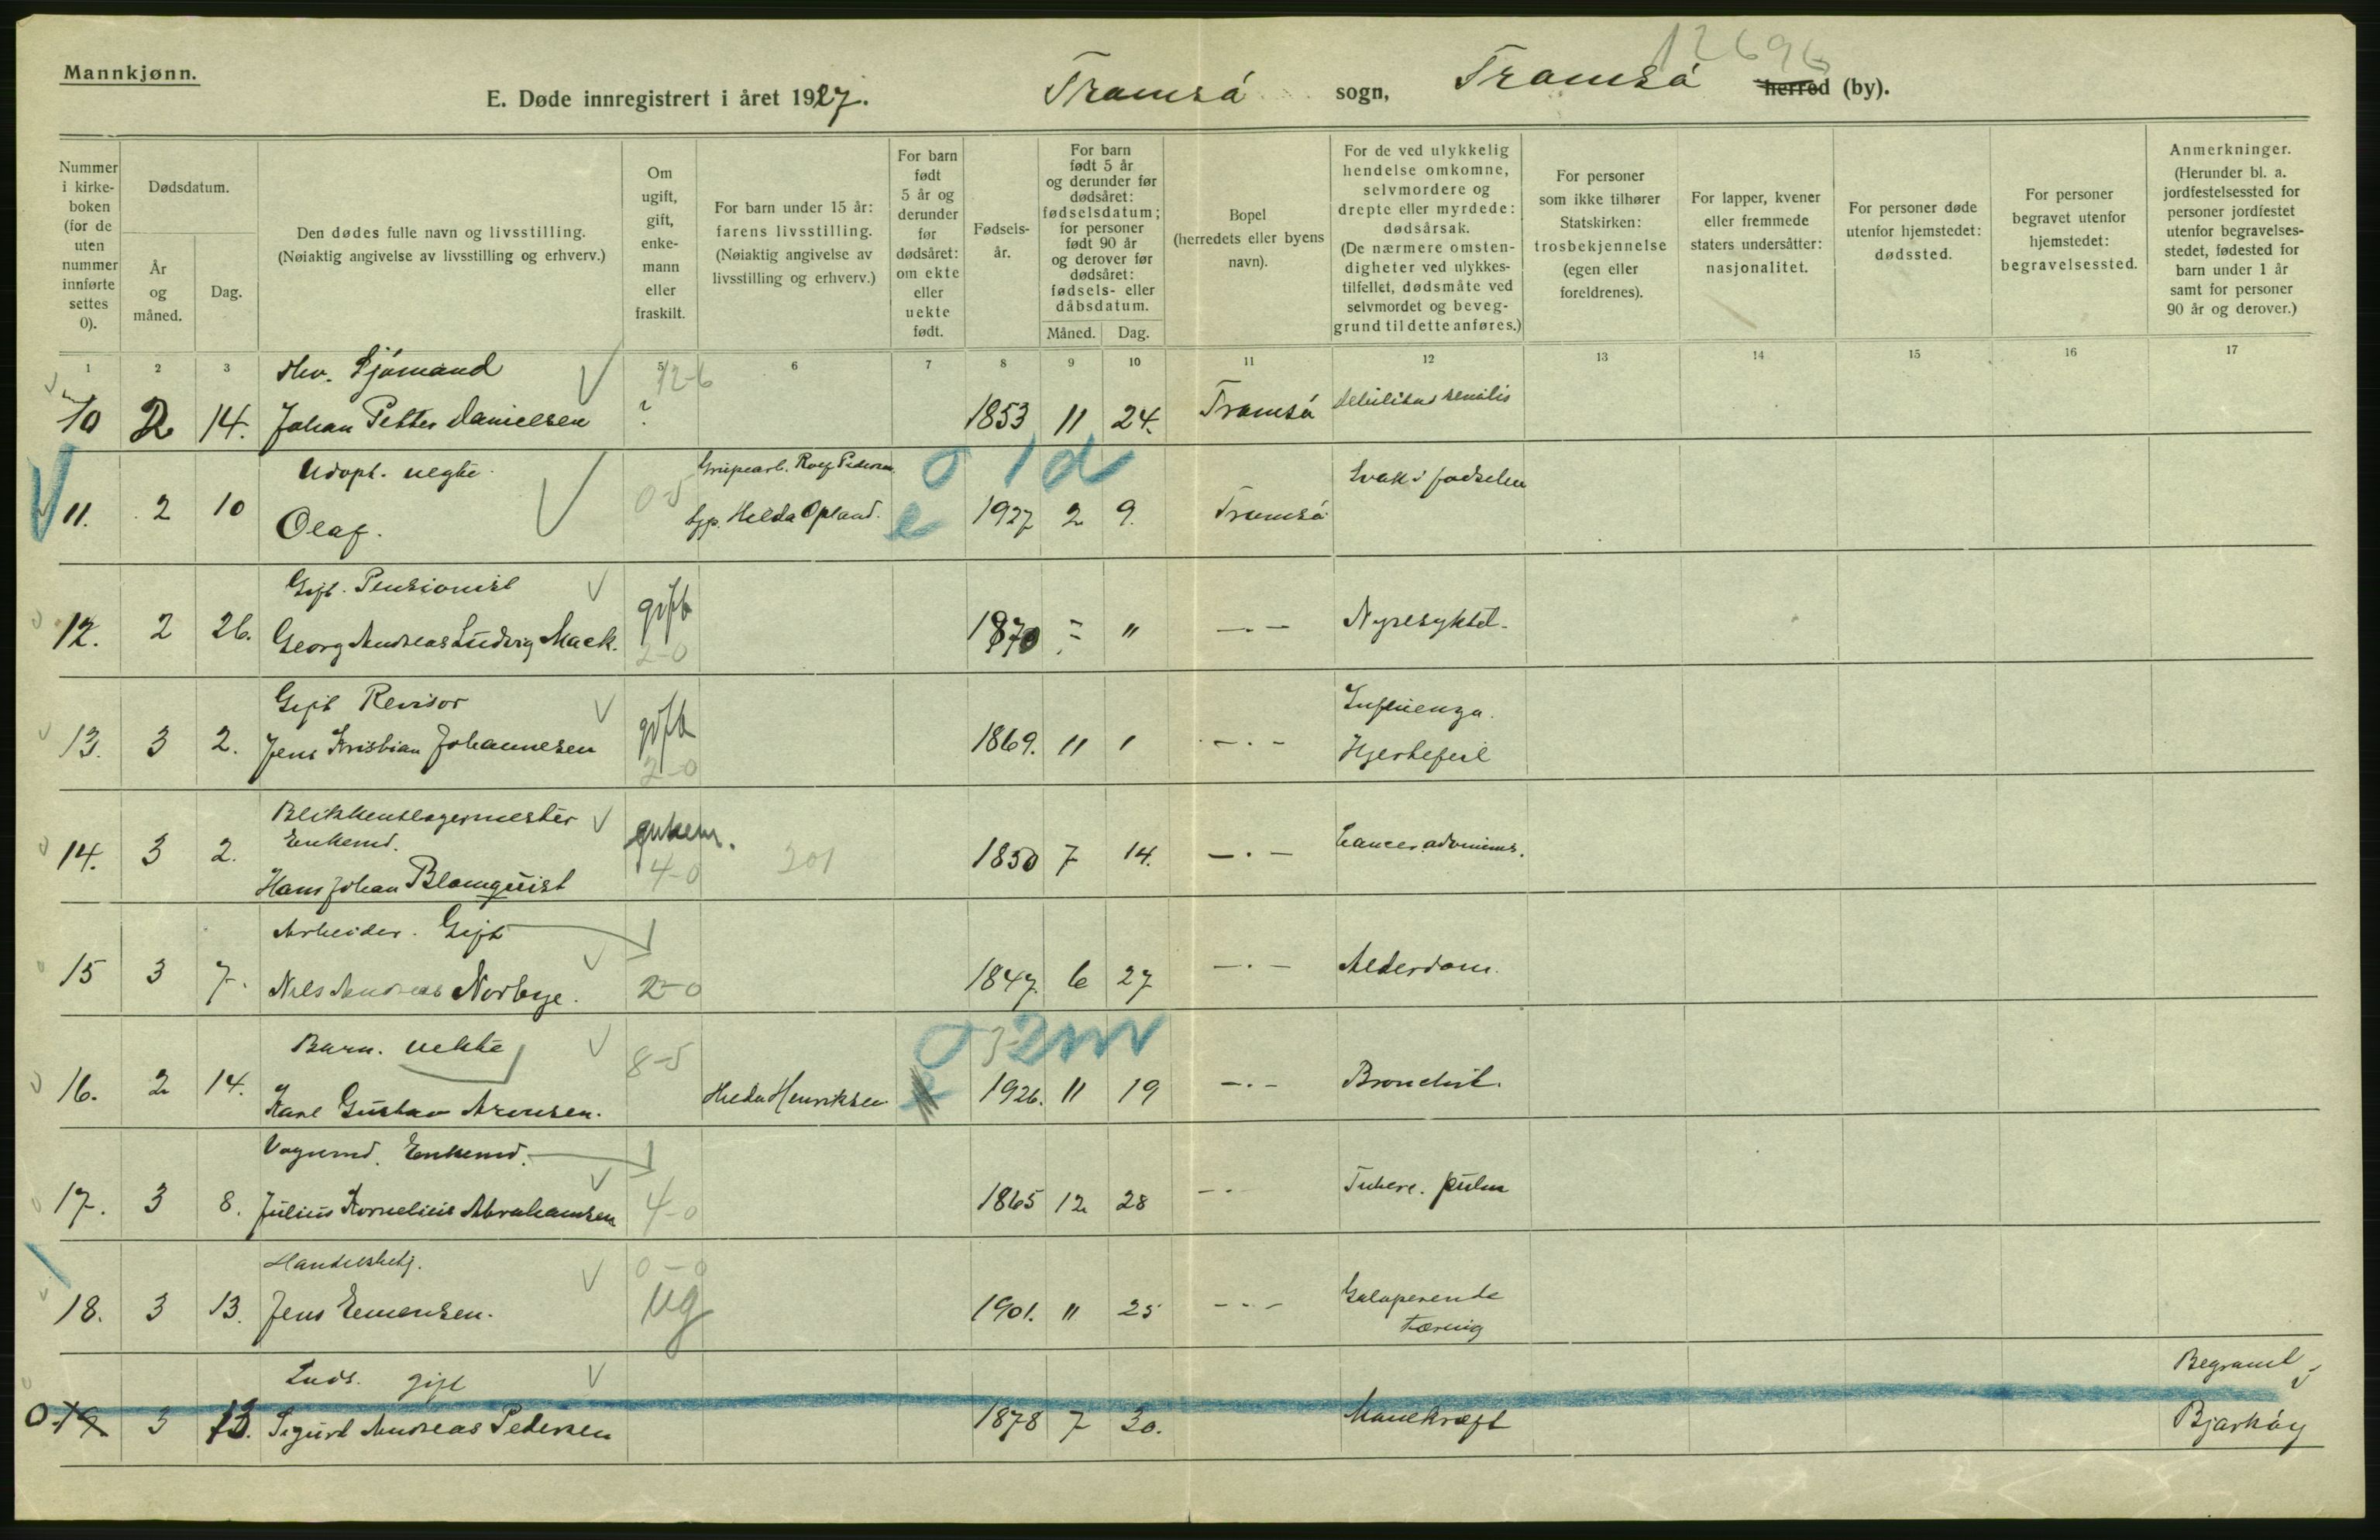 12696
Mannkjønn.
E. Døde innregistrert i året 1927. Tromsø sogn, Tromsø herred (by).
Nummer i kirke-boken (for de uten nummer innførte settes 0).
Dødsdatum.
År og måned.
Dag.
Den dødes fulle navn og livsstilling.
(Nøiaktig angivelse av livsstilling og erhverv.)
Om ugift, gift, enke-mann eller fraskilt.
For barn under 15 år: farens livsstilling. (Nøiaktig angivelse av livsstilling og erhverv.)
For barn født 5 år og derunder før dødsåret: om ekte eller uekte født.
Fødsels-år.
For barn født 5 år og derunder før dødsåret: fødselsdatum; for personer født 90 år og derover før dødsåret: fødsels- eller dåbsdatum.
Måned. Dag.
Bopel (herredets eller byens navn).
For de ved ulykkelig hendelse omkomne, selvmordere og drepte eller myrdede: dødsårsak. (De nærmere omsten-digheter ved ulykkes-tilfellet, dødsmåte ved selvmordet og beveg-grund til dette anføres.)
For personer som ikke tilhører Statskirken: trosbekjennelse (egen eller foreldrenes).
For lapper, kvener eller fremmede staters undersåtter: nasjonalitet.
For personer døde utenfor hjemstedet: dødssted.
For personer begravet utenfor hjemstedet: begravelsessted.
Anmerkninger. (Herunder bl. a. jordfestelsessted for personer jordfestet utenfor begravelses-stedet, fødested for barn under 1 år samt for personer 90 år og derover.)
1 2 3 5 6 7 8 9 10 11 12 13 14 15 16 17
Sjømand 12-6
10 2 14. Johan Petter Danielsen ? 1853 11 24. Tromsø debilitas senilis
Udøpt. uegte. 0-5 Rolf Pedersen 1d Svak i fødselen
11. 2 10 Olaf. Helda Opland. e 1927 2 9. Tromsø
Gift. Pensionist gift
12. 2 26. Georg Andreas Ludvig Mack. 2-0 1870 " " —.— Nyresykdd.
Gift Revisor gift Influenza.
13. 3 2. Jens Kristian Johannesen 2-0 1869. 11 1 —.— Hjertefeil
Blikkenslagermester
Enkemd. enkem.
14. 3 2. Hans Johan Blomquist 4-0 201 1850 7 14. —.— Cancer
Arbeider. Gift
15 3 7. Nils Andreas Norbye. 2-0 1847 6 27 —.— Alderdom.
Barn. uekte 8-5 3 2m
16. 2 14. Karl Gustav Aronsen. Hilda Henriksen 1926. 11 19 —.— Bronchit.
Vognmd. Enkemd.
17. 3 8. Julius Kornelius Abrahamsen 4-0 1865 12 28 —.— Tuberc. pulm
Handelsbetj. 0-0
18. 3 13. Jens Eemensen. ug 1901. 11 25 —.— Galoperende tæring
gift Begravet
0 19. 3 13. Sigurd Andreas Pedersen 1878 7 30. Bjarkøy